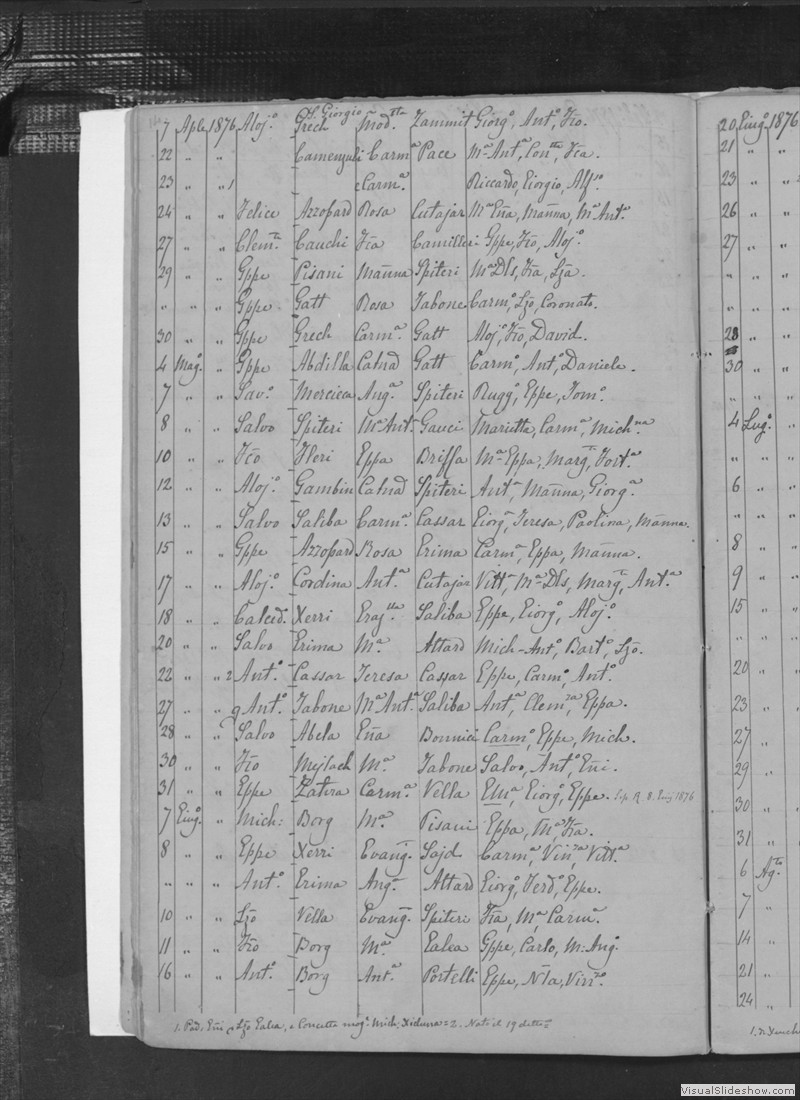 H. Giorgio
7 Aple 1876 Aloj.o Grech Mod.tta Zammit Giorg.o, Ant.o, Fco.
22 „ „ Camenzuli Carm.a Pace Ma Ant.a, Con.tta, Fca.
23 „ „ 1 e Carm.a Riccardo, Giorgio, Alf.o
24 „ „ Felice Azzopard Rosa Cutajar Ma Eña, Mañna, Ma Ant.a
27 „ „ Clem.te Cauchi Fca Camilleri Gppe, Fco, Aloj.o
29 „ „ Gppe Pisani Mañna Spiteri Ma Dls, Fca, Lza.
„ „ „ Gppe Gatt Rosa Tabone Carm.o, Lzo, Coronato.
30 „ „ Gppe Grech Carm.a Gatt Aloj.o, Fco, David.
4 Mag.o „ Gppe Abdilla Catnd Gatt Carm.o, Ant.o, Daniele.
7 „ „ Sav.o Mercieca Ang.a Spiteri Rugg.o, Gppe, Tom.o
8 „ „ Salvo Spiteri Ma Ant.a Gauci Marietta, Carm.a, Mich.na
10 „ „ Fco Fleri Gppa Briffa Ma Gppa, Marg.ta, Fort.a
12 „ „ Aloj.o Gambin Catnd Spiteri Ant.a, Mañna, Giorg.a
13 „ „ Salvo Saliba Carm.a Cassar Giorg.a, Teresa, Paolina, Mañna.
15 „ „ Gppe Azzopard Rosa Grima Carm.a, Gppa, Mañna.
17 „ „ Aloj.o Cordina Ant.a Cutajar Vitt.a, Ma Dls, Marg.ta, Ant.a
18 „ „ Calcid.o Xerri Graz.lla Saliba Gppe, Giorg.o, Aloj.o
20 „ „ Salvo Grima Ma Attard Mich-Ant.o, Bart.o, Lzo.
22 „ „ 2 Ant.o Cassar Teresa Cassar Gppe, Carm.o, Ant.o
27 „ „ q Ant.o Tabone Ma Ant.a Saliba Ant.a, Clem.za, Gppa.
28 „ „ Salvo Abela Eña Bonnici Carm.o, Gppe, Mich.
30 „ „ Fco Mejlach Ma Tabone Salvo, Ant.o, Eñi.
31 „ „ Gppe Zahra Carm.a Vella Ema, Giorg.o, Gppe. 8. Giug 1876
7 Giug.o „ Mich: Borg Ma Pisani Gppa, Ma Fca.
8 „ „ Gppe Xerri Evang.a Sajd Carm.a, Vin.za, Vitt.a
„ „ „ Ant.o Grima Ang.a Attard Giorg.o, Ferd.o, Gppe.
10 „ „ Lzo Vella Evang.a Spiteri Fca, Ma, Carm.a
11 „ „ Fco Borg Ma Galea Gppe, Carlo, M: Ang.o
16 „ „ Ant.o Borg Ant.a Portelli Gppe, Nla, Vin.zo
1. Pad. Eñi e Lzo Galea, e Concetta mog.e Mich: Xicluna = 2. Nati il 19 detto =
20 Giug.o 1876
21 „ „
23 „ „
26 „ „
27 „ „
„ „ „
„ „ „
28 „ „
30 „ „
„ „ „
4 Lug.o „
„ „ „
6 „ „
„ „ „
8 „ „
9 „ „
15 „ „
„ „ „
20 „ „
23 „ „
27 „
29 „
30 „
31 „
6 Ag.to
7 „
14 „
21 „
24 „
VisualSlideshow.com